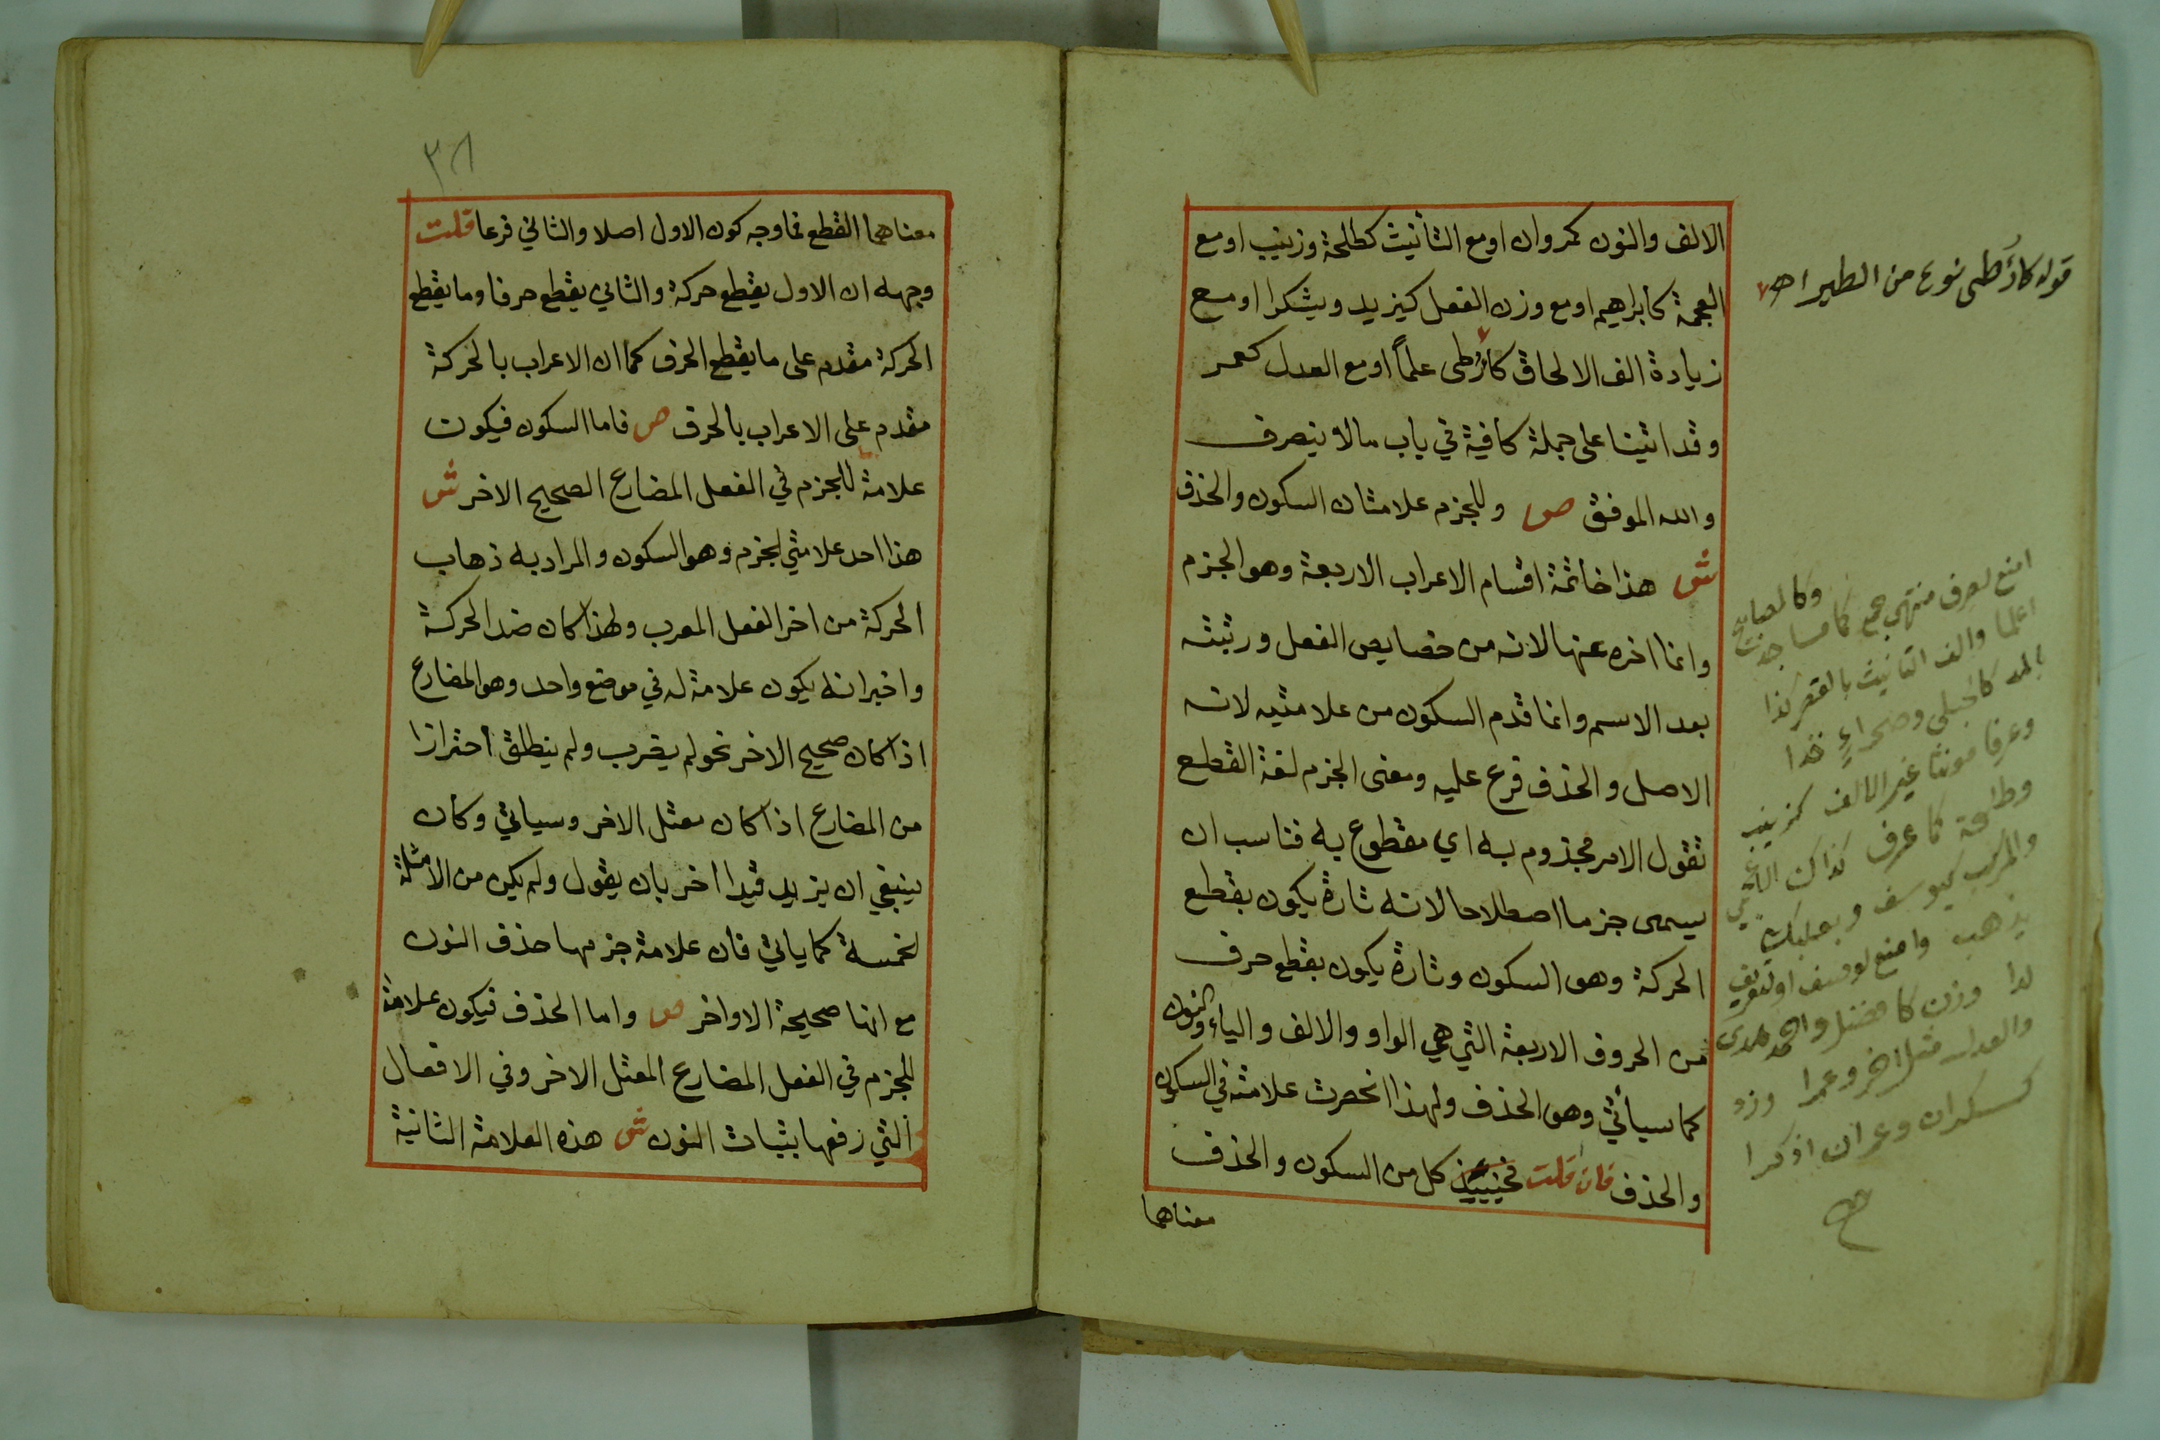 الالف والنون كمروان او مع التأنيث كطلحة وزينب او مع
العجمة كابراهيم او مع وزن الفعل كيزيد ويشكرا او مع
زيادة الف الالحاق كأرطى علماً او مع العدل كعمر
وقد اتينا على جملة كافية في باب مالا ينصرف
والله الموفق ص وللجزم علامتان السكون والحذف
ش هذا خاتمة اقسام الاعراب الاربعة وهو الجزم
وانما اخره عنها لانه من خصايص الفعل ورتبته
بعد الاسم وانما قدم السكون من علامتيه لانه
الاصل والحذف فرع عليه ومعنى الجزم لغة القطع
تقول الامر مجذوم به اي مقطوع به فناسب ان
يسمى جزما اصطلاحا لانه تارة يكون بقطع
الحركة وهو السكون وتارة يكون بقطع حرف
من الحروف الاربعة التي هي الواو والالف والياء والنون
كما سيأتي وهو الحذف ولهذا انحصرت علامته في السكون
والحذف فان قلت فحينئذ كل من السكون والحذف
معناهما
قوله كأرطى نوع من الطير اهـ
امنع لصرف منتهى جمع كما مساجدت
وكالمصابيح
اعلما والف التانيث بالقصر كذا
المد كالحبلى وصحراءٍ خذا
وعرفا مونثا غير الالف كزينب
وطلحة كما عرف كذاك الاعجمي
والمركب كيوسف وبعلبك
يذهب وامنع لوصف او تعريف
لدا وزن كا فضل واحمد هدى
والعدل مثل اخر وعمرا وزد
كسكران وعمران اذكرا
٣٨
معناهما القطع فما وجه كون الاول اصلا والثاني فرعا قلت
وجهه ان الاول يقطع حركة والثاني يقطع حرفا وما يقطع
الحركة مقدم على ما يقطع الحرف كما ان الاعراب بالحركة
مقدم على الاعراب بالحرف ص فاما السكون فيكون
علامة للجزم في الفعل المضارع الصحيح الاخر ش
هذا احد علامتي الجزم وهو السكون والمراد به ذهاب
الحركة من اخر الفعل المعرب ولهذا كان ضد الحركة
واخبر انه يكون علامة له في موضع واحد وهو المضارع
اذا كان صحيح الاخر نحو لم يضرب ولم ينطلق احترازا
من المضارع اذا كان معتل الاخر وسياتي وكان
ينبغي ان يزيد قيدا اخر بان يقول ولم يكن من الامثلة
الخمسة كما ياتي فان علامة جزمها حذف النون
مع انها صحيحة الاواخر ص واما الحذف فيكون علامة
للجزم في الفعل المضارع المعتل الاخر وفي الافعال
التي رفعها بثبات النون ش هذه العلامة الثانية